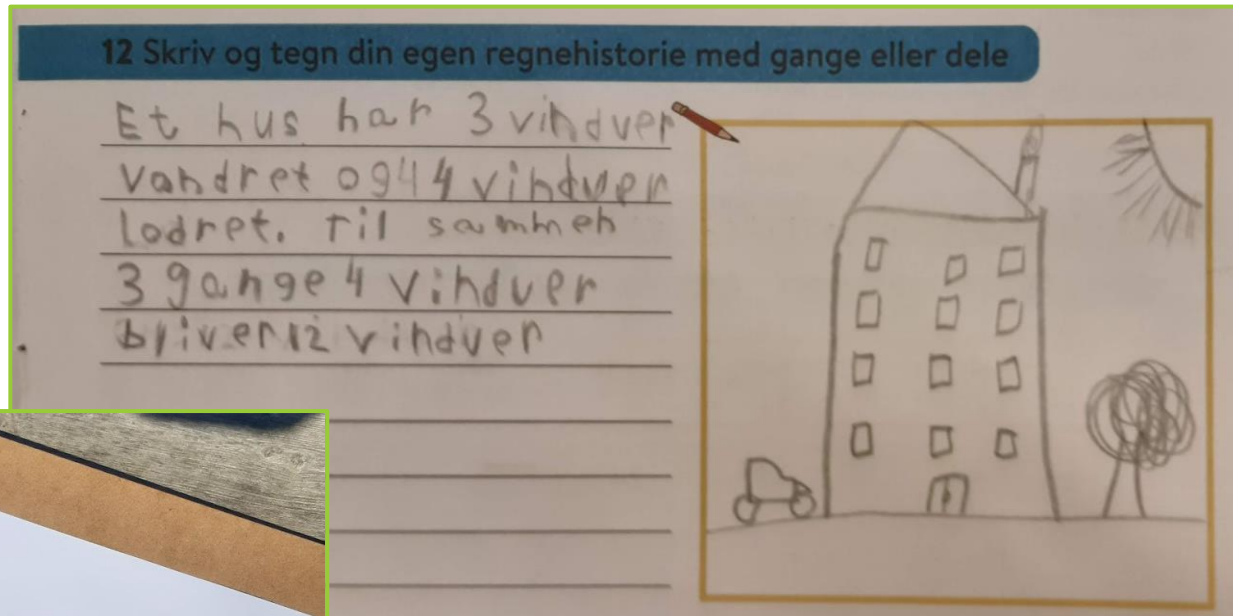 12 Skriv og tegn din egen regnehistorie med gange eller dele
Et hus har 3 vindver
vandret og 4 4 vindver
lodret. Til sammen
3 gange 4 vindver
bliver 12 vindver